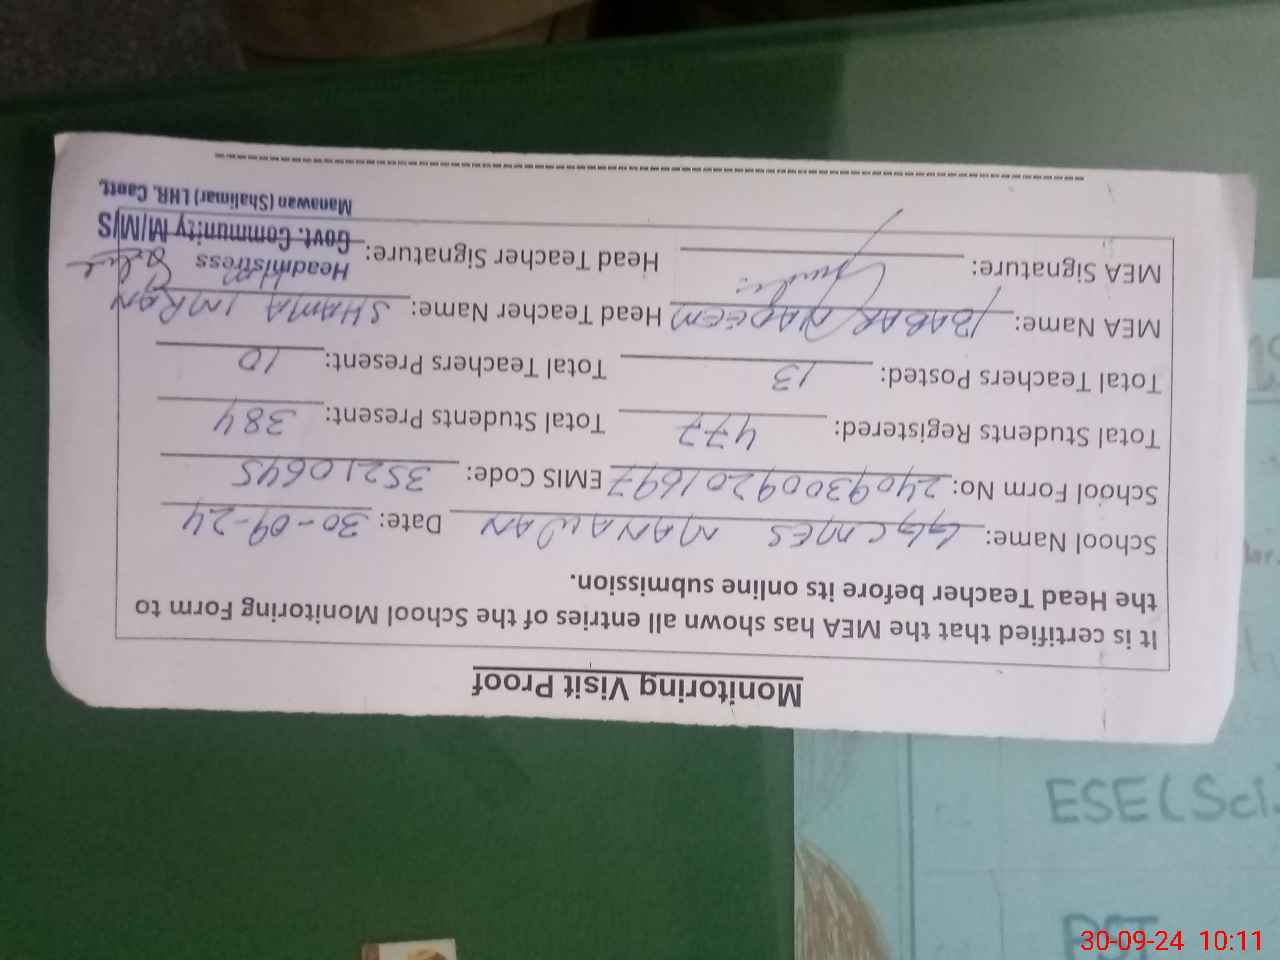 Monitoring Visit Proof
It is certified that the MEA has shown all entries of the School Monitoring Form to
the Head Teacher before its online submission.
School Name: GGCMES MANAWAN Date: 30-09-24
School Form No: 2409300920 1697 EMIS Code: 35210645
Total Students Registered: 477 Total Students Present: 384
Total Teachers Posted: 13 Total Teachers Present: 10
MEA Name: BABAR NADEEM Head Teacher Name: SHAMA IMRAN
MEA Signature: Head Teacher Signature:
Headmistress
Govt. Community M/M/S
Manawan (Shalimar) LHR. Cantt,
ESE (Sci.
PST
30-09-24 10:11